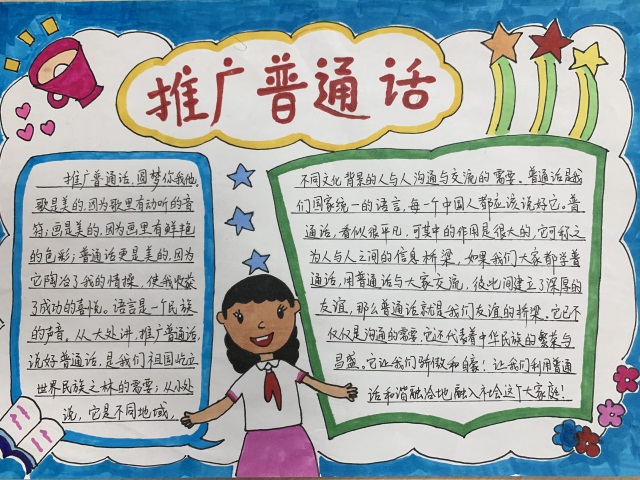 推广普通话
推广普通话,圆梦你我他。
歌是美的,因为歌里有动听的音
符;画是美的,因为画里有鲜艳
的色彩;普通话更是美的,因为
它陶冶了我的情操,使我收获
了成功的喜悦。语言是一个民族
的声音,从大处讲,推广普通话,
说好普通话,是我们祖国屹立
世界民族之林的需要;从小处
说,它是不同地域,
不同文化背景的人与人沟通与交流的需要。普通话是我
们国家统一的语言,每一个中国人都应该说好它。普
通话,看似很平凡,可其中的作用是很大的,它可称之
为人与人之间的信息桥梁,如果我们大家都学普
通话,用普通话与大家交流,彼此间建立了深厚的
友谊,那么普通话就是我们友谊的桥梁,它已不
仅仅是沟通的需要,它还代表着中华民族的繁荣与
昌盛,它让我们骄傲和自豪!让我们利用普通
话和谐融洽地融入社会这个大家庭!